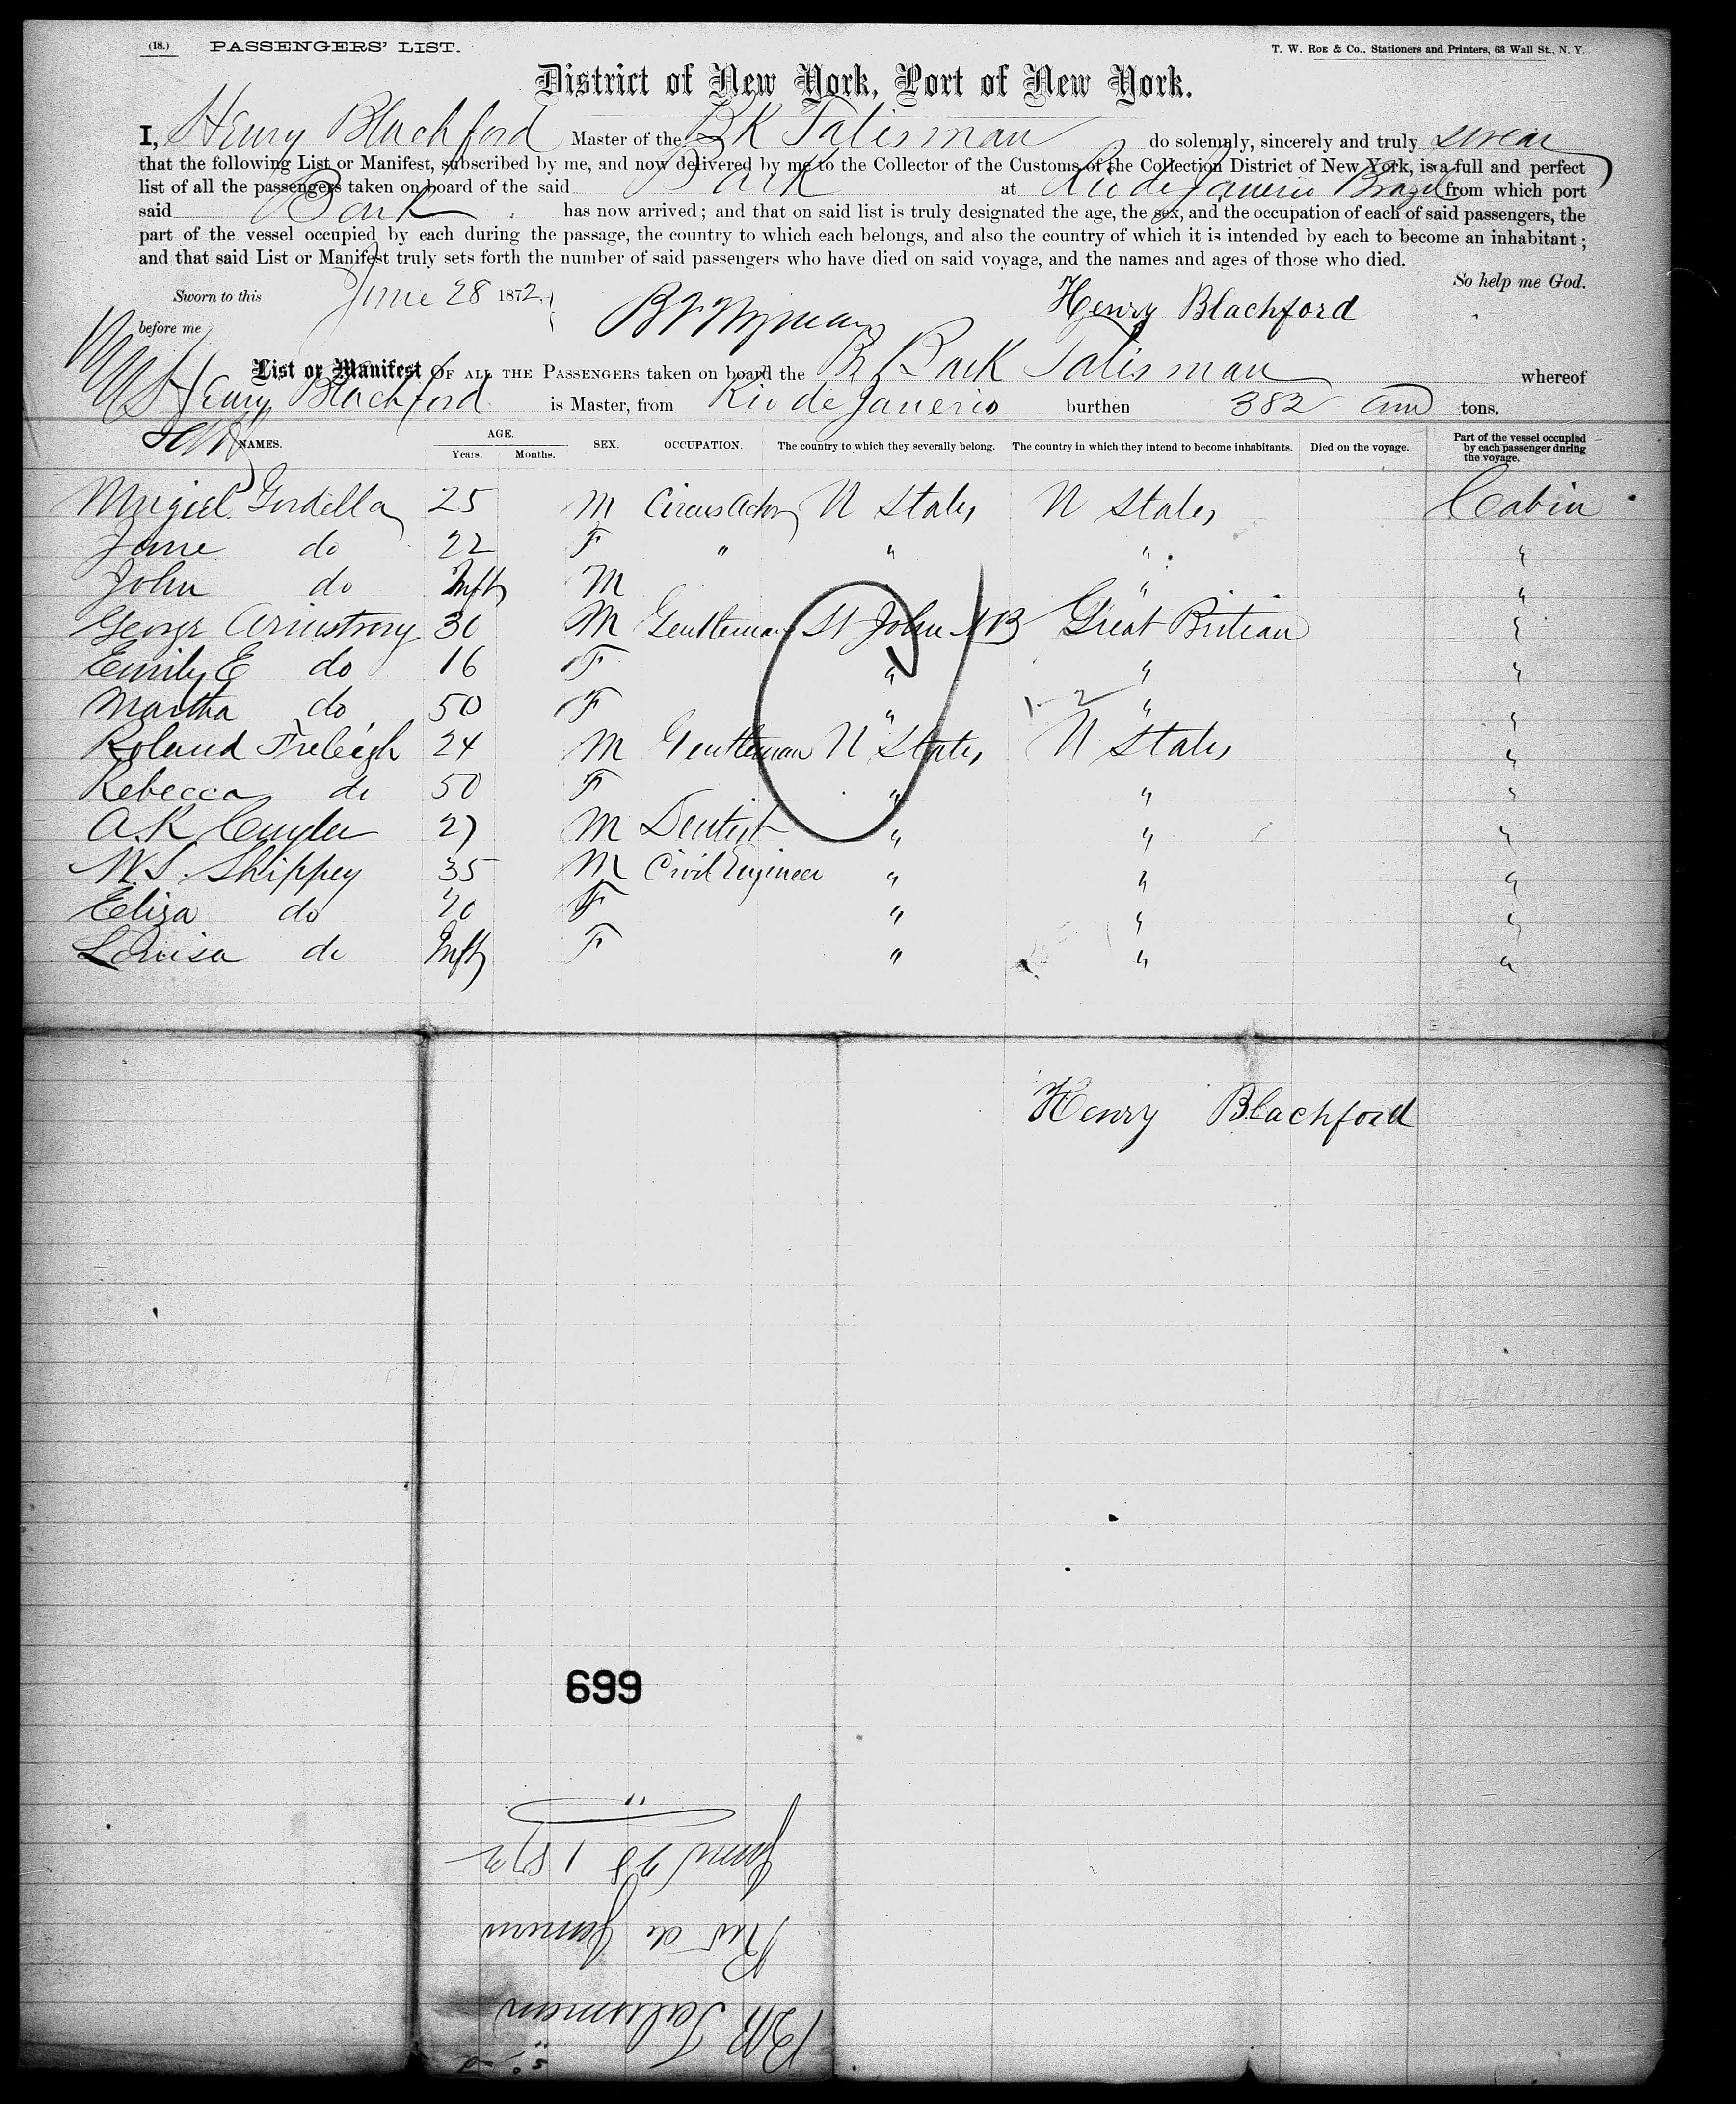 (18.) PASSENGERS' LIST. T. W. ROE & Co., Stationers and Printers, 63 Wall St., N. Y.
District of New York, Port of New York.
I, Henry Blachford Master of the BK Talisman do solemnly, sincerely and truly swear
that the following List or Manifest, subscribed by me, and now delivered by me to the Collector of the Customs of the Collection District of New York, is a full and perfect
list of all the passengers taken on board of the said Bark at Rio de Janerio Brazil from which port
said Bark has now arrived; and that on said list is truly designated the age, the sex, and the occupation of each of said passengers, the
part of the vessel occupied by each during the passage, the country to which each belongs, and also the country of which it is intended by each to become an inhabitant;
and that said List or Manifest truly sets forth the number of said passengers who have died on said voyage, and the names and ages of those who died.
So help me God.
Sworn to this June 28 1872. Henry Blachford
before me
List or Manifest OF ALL THE PASSENGERS taken on board the Br Bark Talisman whereof
Henry Blachford is Master, from Rio de Janerio burthen 382 tons.
NAMES. AGE. SEX. OCCUPATION. The country to which they severally belong. The country in which they intend to become inhabitants. Died on the voyage. Part of the vessel occupied by each passenger during the voyage.
Years. Months.
Gordella 25 M Circus Actor U States U States Cabin
Jane do 22 F " " " "
John do Inft M " "
George Armstrong 30 M Gentleman St John NB Great Britian "
Emily E do 16 F " " "
Martha do 50 F " " "
1-2
Roland Freleigh 24 M Gentleman U States U States "
Rebecca do 50 F " " "
A. R Cuyler 27 M Dentist " " "
W. S. Shippey 35 M Civil Engineer " " "
Eliza do 20 F " " "
Louisa do Inft F " " "
Henry Blachford
699
June 28 1872
Rio de Janerio
Talisman